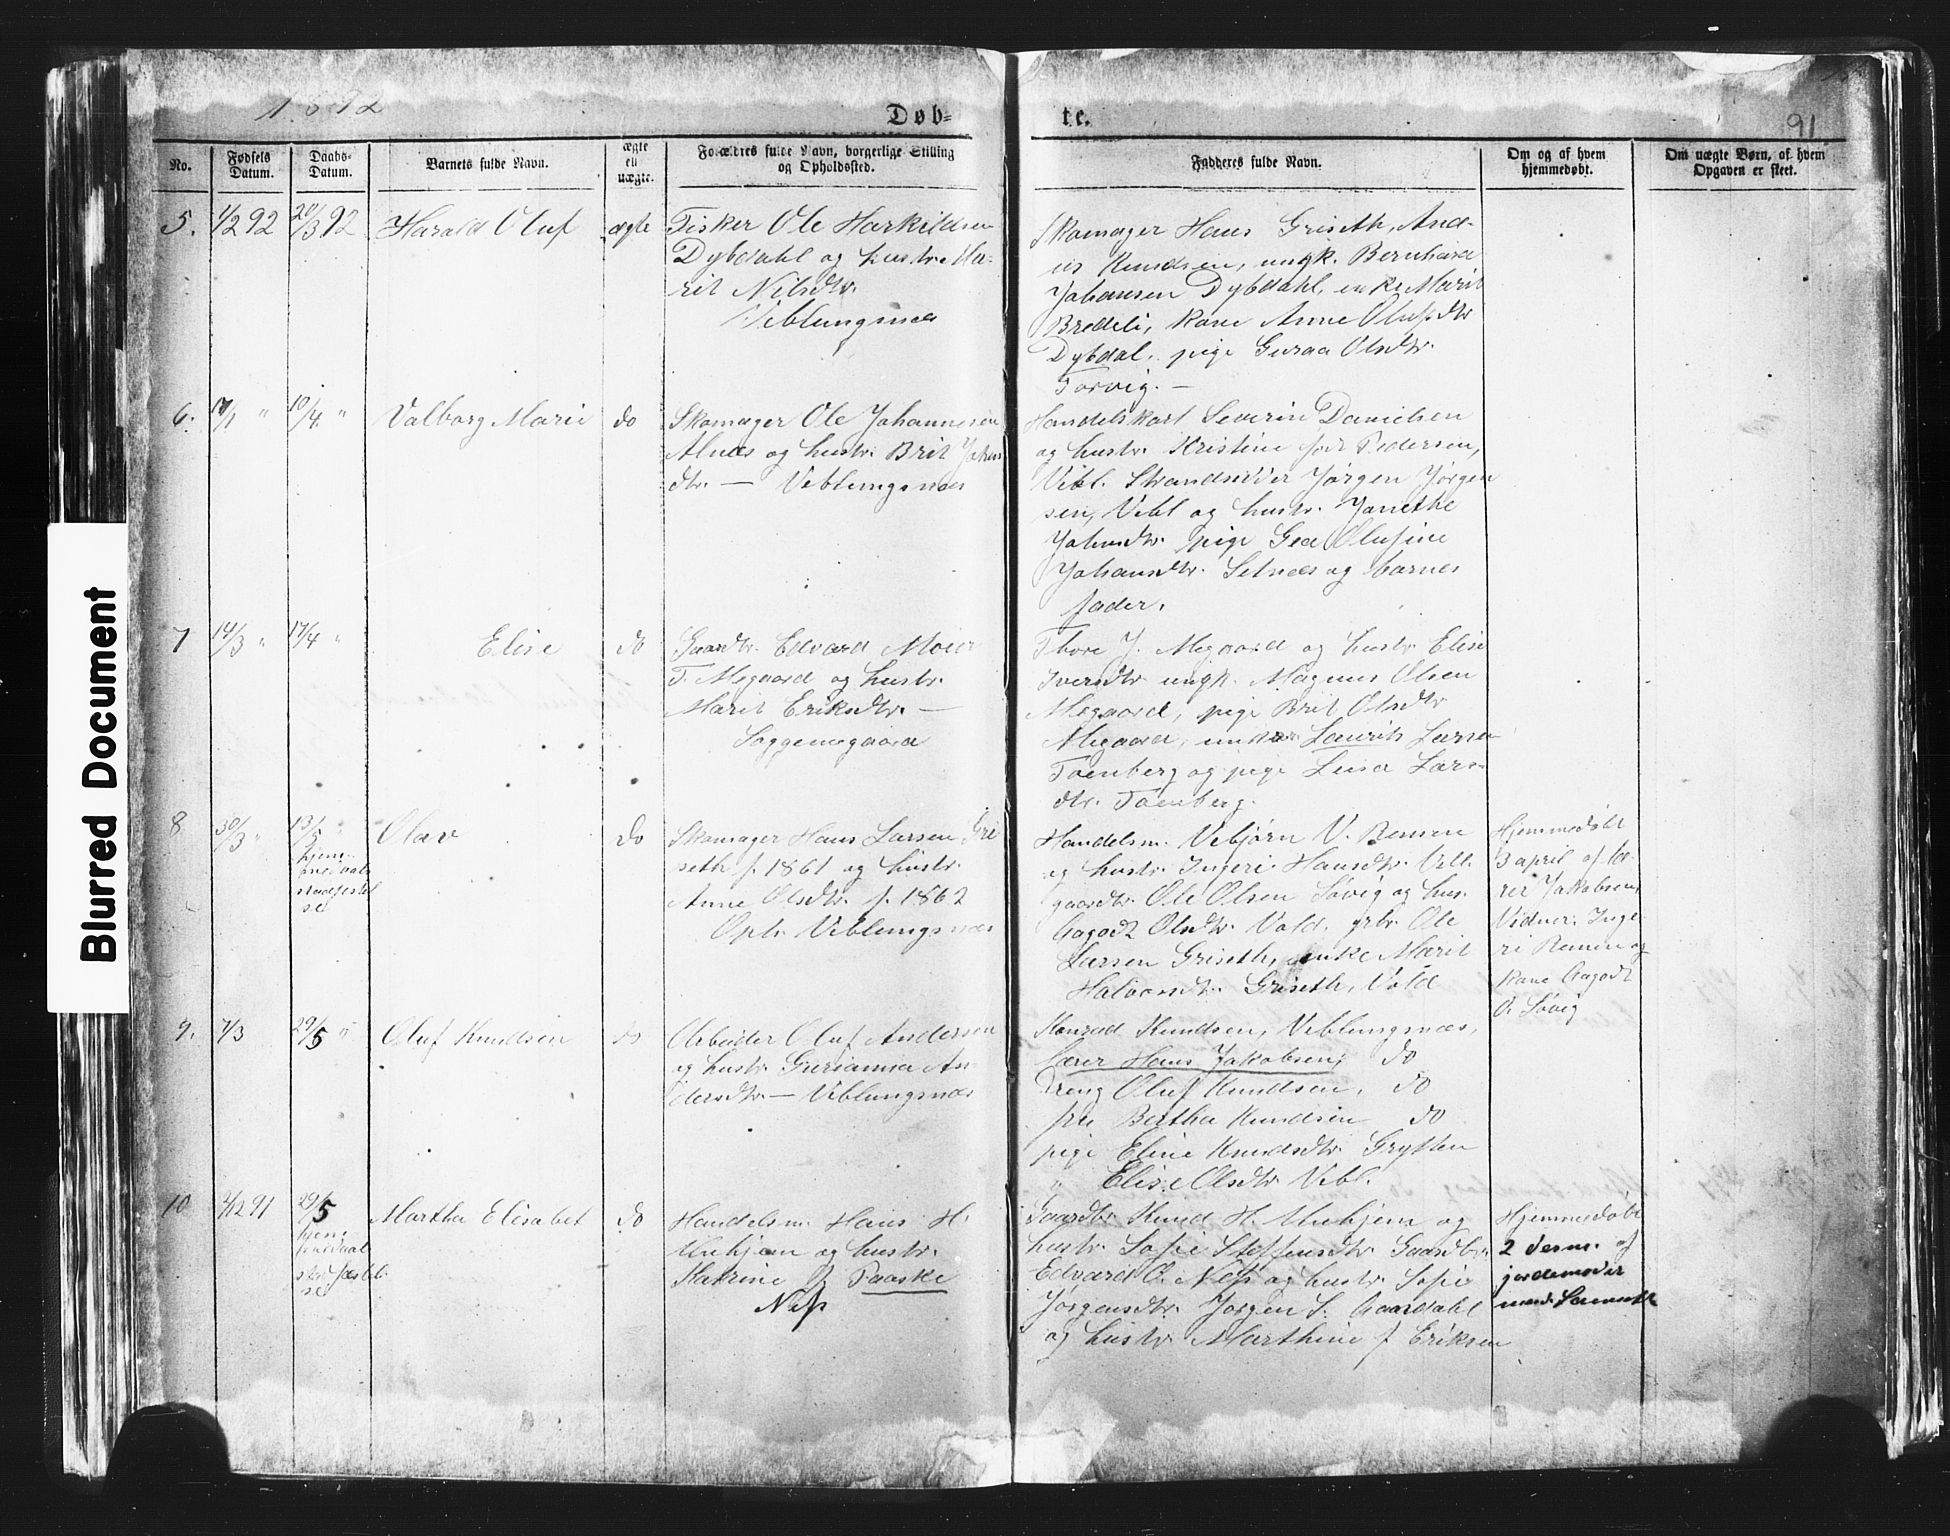 1892
Døb=
te.
91
No.
Fødsels Datum.
Daabs-Datum.
Barnets fulde Navn.
ægte ell uægte.
Forældres fulde Navn, borgerlige Stilling og Opholdssted.
Fadderes fulde Navn.
Om og af hvem hjemmedøbt.
Om uægte Børn, af hvem Opgaven er skeet.
5. 1/2 92 20/3 92 Harald Oluf ægte
Fisker Ole Harkildsen
Dybdahl og hustr. Ma-
rit Nilsdtr.
Veblungsnæs
Skomager Hans Griseth, And-
rs Knudsen, ungk. Bernhard
Johansen Dybdahl, enke Marit
Bredeli, kone Anne Olufsdtr
Dybdal, pige Guraa Olsdtr.
Torvig. —
6. 10/4 " Valborg Marie do
Skomager Ole Johannesen
Alnæs og hustr. Brit Johns
dtr. — Veblungsnæs
Handelskarl Severin Danielsen
og hustr. Kristine født Pedersen,
Vebl. Strandsidder Jørgen Jørgen
sen, Vebl og hustr. Janethe
Johnsdtr. pige Gea Olufine
Johansdtr. Setnæs og barnets
fader.
7 14/3 " 17/4 " Elise do
Gaardbr. Edvard Meier
T. Megaard og hustr.
Marit Eriksdtr. —
Soggemegaard
Thore J. Megaard og hustr Elise
Iversdtr ungk. Magnus Olsen
Megaard, pige Brit Olsdtr
Megaard, ungkar Laurits Larsen
Toenberg og pige Lusa Lars-
dtr. Toenberg.
8 30/3 " 13/5 " Olav do
hjem-
medaab
stadfestel
se
Skomager Hans Larsen Gri
seth f. 1861 og hustr.
Anne Olsdtr. f. 1862
Oph. Veblungsnæs
Handelsm. Vebjørn V. Remen
og hustr. Ingeri Hansdtr. Vebl.
gaardbr. Ole Olsen Søvig og hus.
Aagodt Olsdtr. Vold. grbr. Ole
Larsen Griseth, enke Marit
Halvorsdtr. Griseth, Vold
Hjemmedøbt
3 april af læ-
rer Jakobsen,
Vidner. Inge-
ri Remen og
kone Aagodt
O. Søvig
9. 7/3 29/5 " Oluf Knudsen do
Arbeider Oluf Andersen
og hustr. Gurianna An
dersdtr. — Veblungsnæs
Konrad Knudsen, Veblungsnæs,
lærer Hans Jakobsen, do
Dreng Oluf Knudsen, do
fru Bertha Knudsen do
pige Eline Knudsdtr. Grytten
" Elise Olsdtr. Vebl.
10 2/12 91 29/5 Martha Elisabet do
hjem
medaab
stadfæstel
se
Handelsm. Hans H.
Unhjem og hustr.
Katrine f. Paaske
Næss
Gaardbr. Knud H. Unhjem og
hustr. Sofie Steffensdtr. Gaardbr.
Edvard O. Næss og hustr. Sofie
Jørgensdtr. Jørgen S. Aandahl
og hustr Marthine f Eriksen
Hjemmedøbt
2 desm. af
jordemoder
mad.
Blurred Document